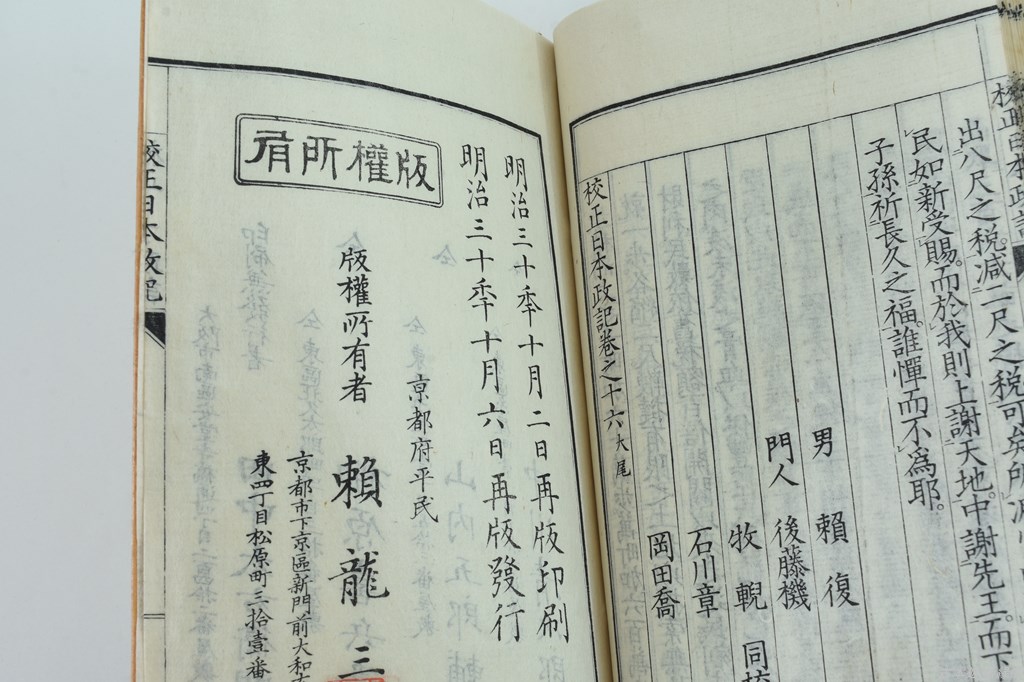 出八尺之税。減二尺之税可矣所
民如新受賜。而於我則上謝天地。中謝先王。而下
子孫祈長久之福。誰憚而不爲耶。
男 賴 復
門人 後藤機
牧 輗 同校
石川章
岡田喬
校正日本政記卷之十六大尾
明治三十年十月二日再版印刷
明治三十年十月六日再版發行
版權所有
京都府平民
版權所有者 賴龍三
京都市下京區新門前大和
東四丁目松原町三拾壹番
校正日本政記